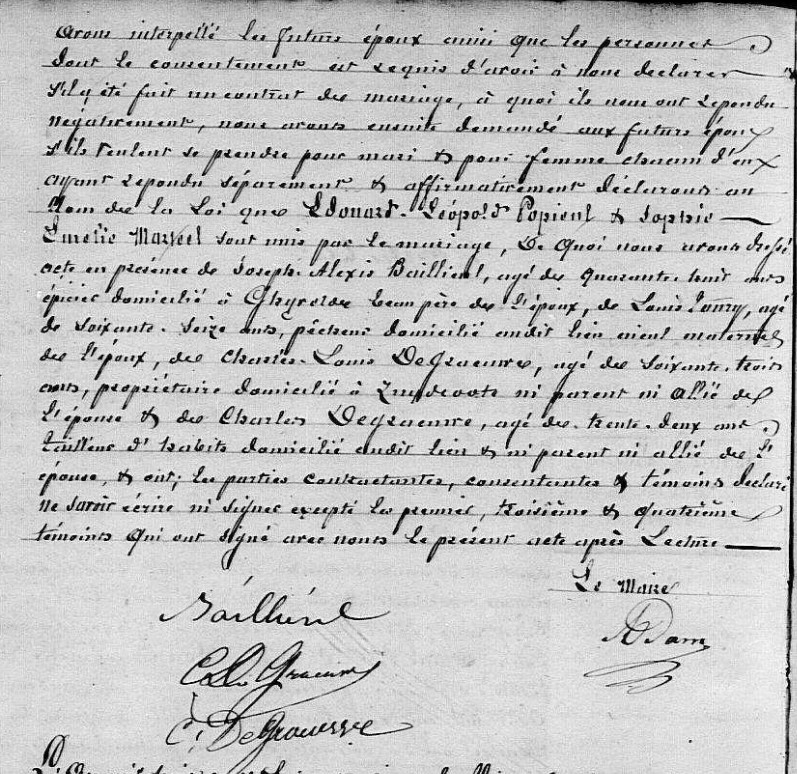 avons interpellé les futurs époux ainsi que les personnes
dont le consentement est requis d'avoir à nous déclarer
s'il y été fait un contrat de mariage, à quoi ils nous ont repondu
négativement, nous avons ensuite demandé aux futurs époux
s'ils veulent se prendre pour mari & pour femme chacun d'eux
ayant repondu séparement & affirmativement déclarons au
Nom de la Loi que Edouard-Léopold Popieul & Sophie
Aurélie Marteel sont unis par le mariage, De Quoi nous avons dressé
acte en présence de Joseph-Alexis Baillieul, agé de quarante-huit ans
épicier domicilié à Ghyvelde beau père de l'époux, de Louis agé
de soixante-seize ans, pêcheur domicilié audit lieu aieul maternel
de l'époux, de Charles-Louis DeGraeuwe, agé de soixante-trois
ans, propriétaire domicilié à Zuydcoote ni parent ni allié de
l'épouse & de Charles Degraeuwe, agé de trente-deux ans
tailleur d'habits domicilié audit lieu & ni parent ni allié de l'
épouse, & ont; les parties contractantes, consentantes & témoins déclaré
ne savoir écrire ni signer excepté les premier, troisième & quatrième
témoints qui ont signé avec nous le présent acte après Lecture
Le Maire
Bailliéul
ADam
C. L. De Graeuwe
C. DeGraeuwe